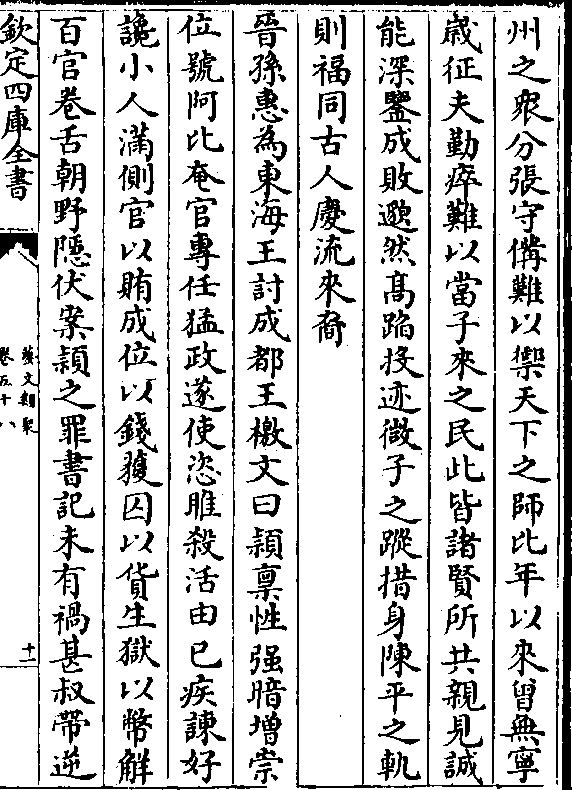 州之衆分張守備難以禦天下之師比年以來曾無寧
歳征夫勤瘁難以當子來之民此皆諸賢所共親見誠
能深鑒成敗邈然髙蹈投迹微子之蹤措身陳平之軌
則福同古人慶流來裔
晉孫惠為東海王討成都王檄文曰頴禀性强暗增崇
位號阿比奄官專任猛政遂使恣睢殺活由已疾諫好
讒小人滿側官以賄成位以錢獲囚以貨生獄以幣解
百官卷舌朝野隱伏案頴之罪書記未有禍甚叔帶逆
欽定四庫全書
藝文類聚
卷五十八
十二